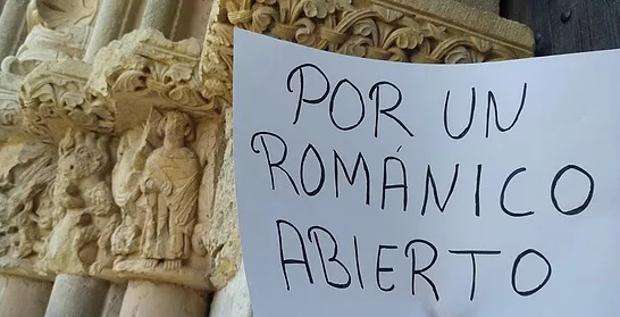 POR UN
ROMÁNICO
ABIERTO